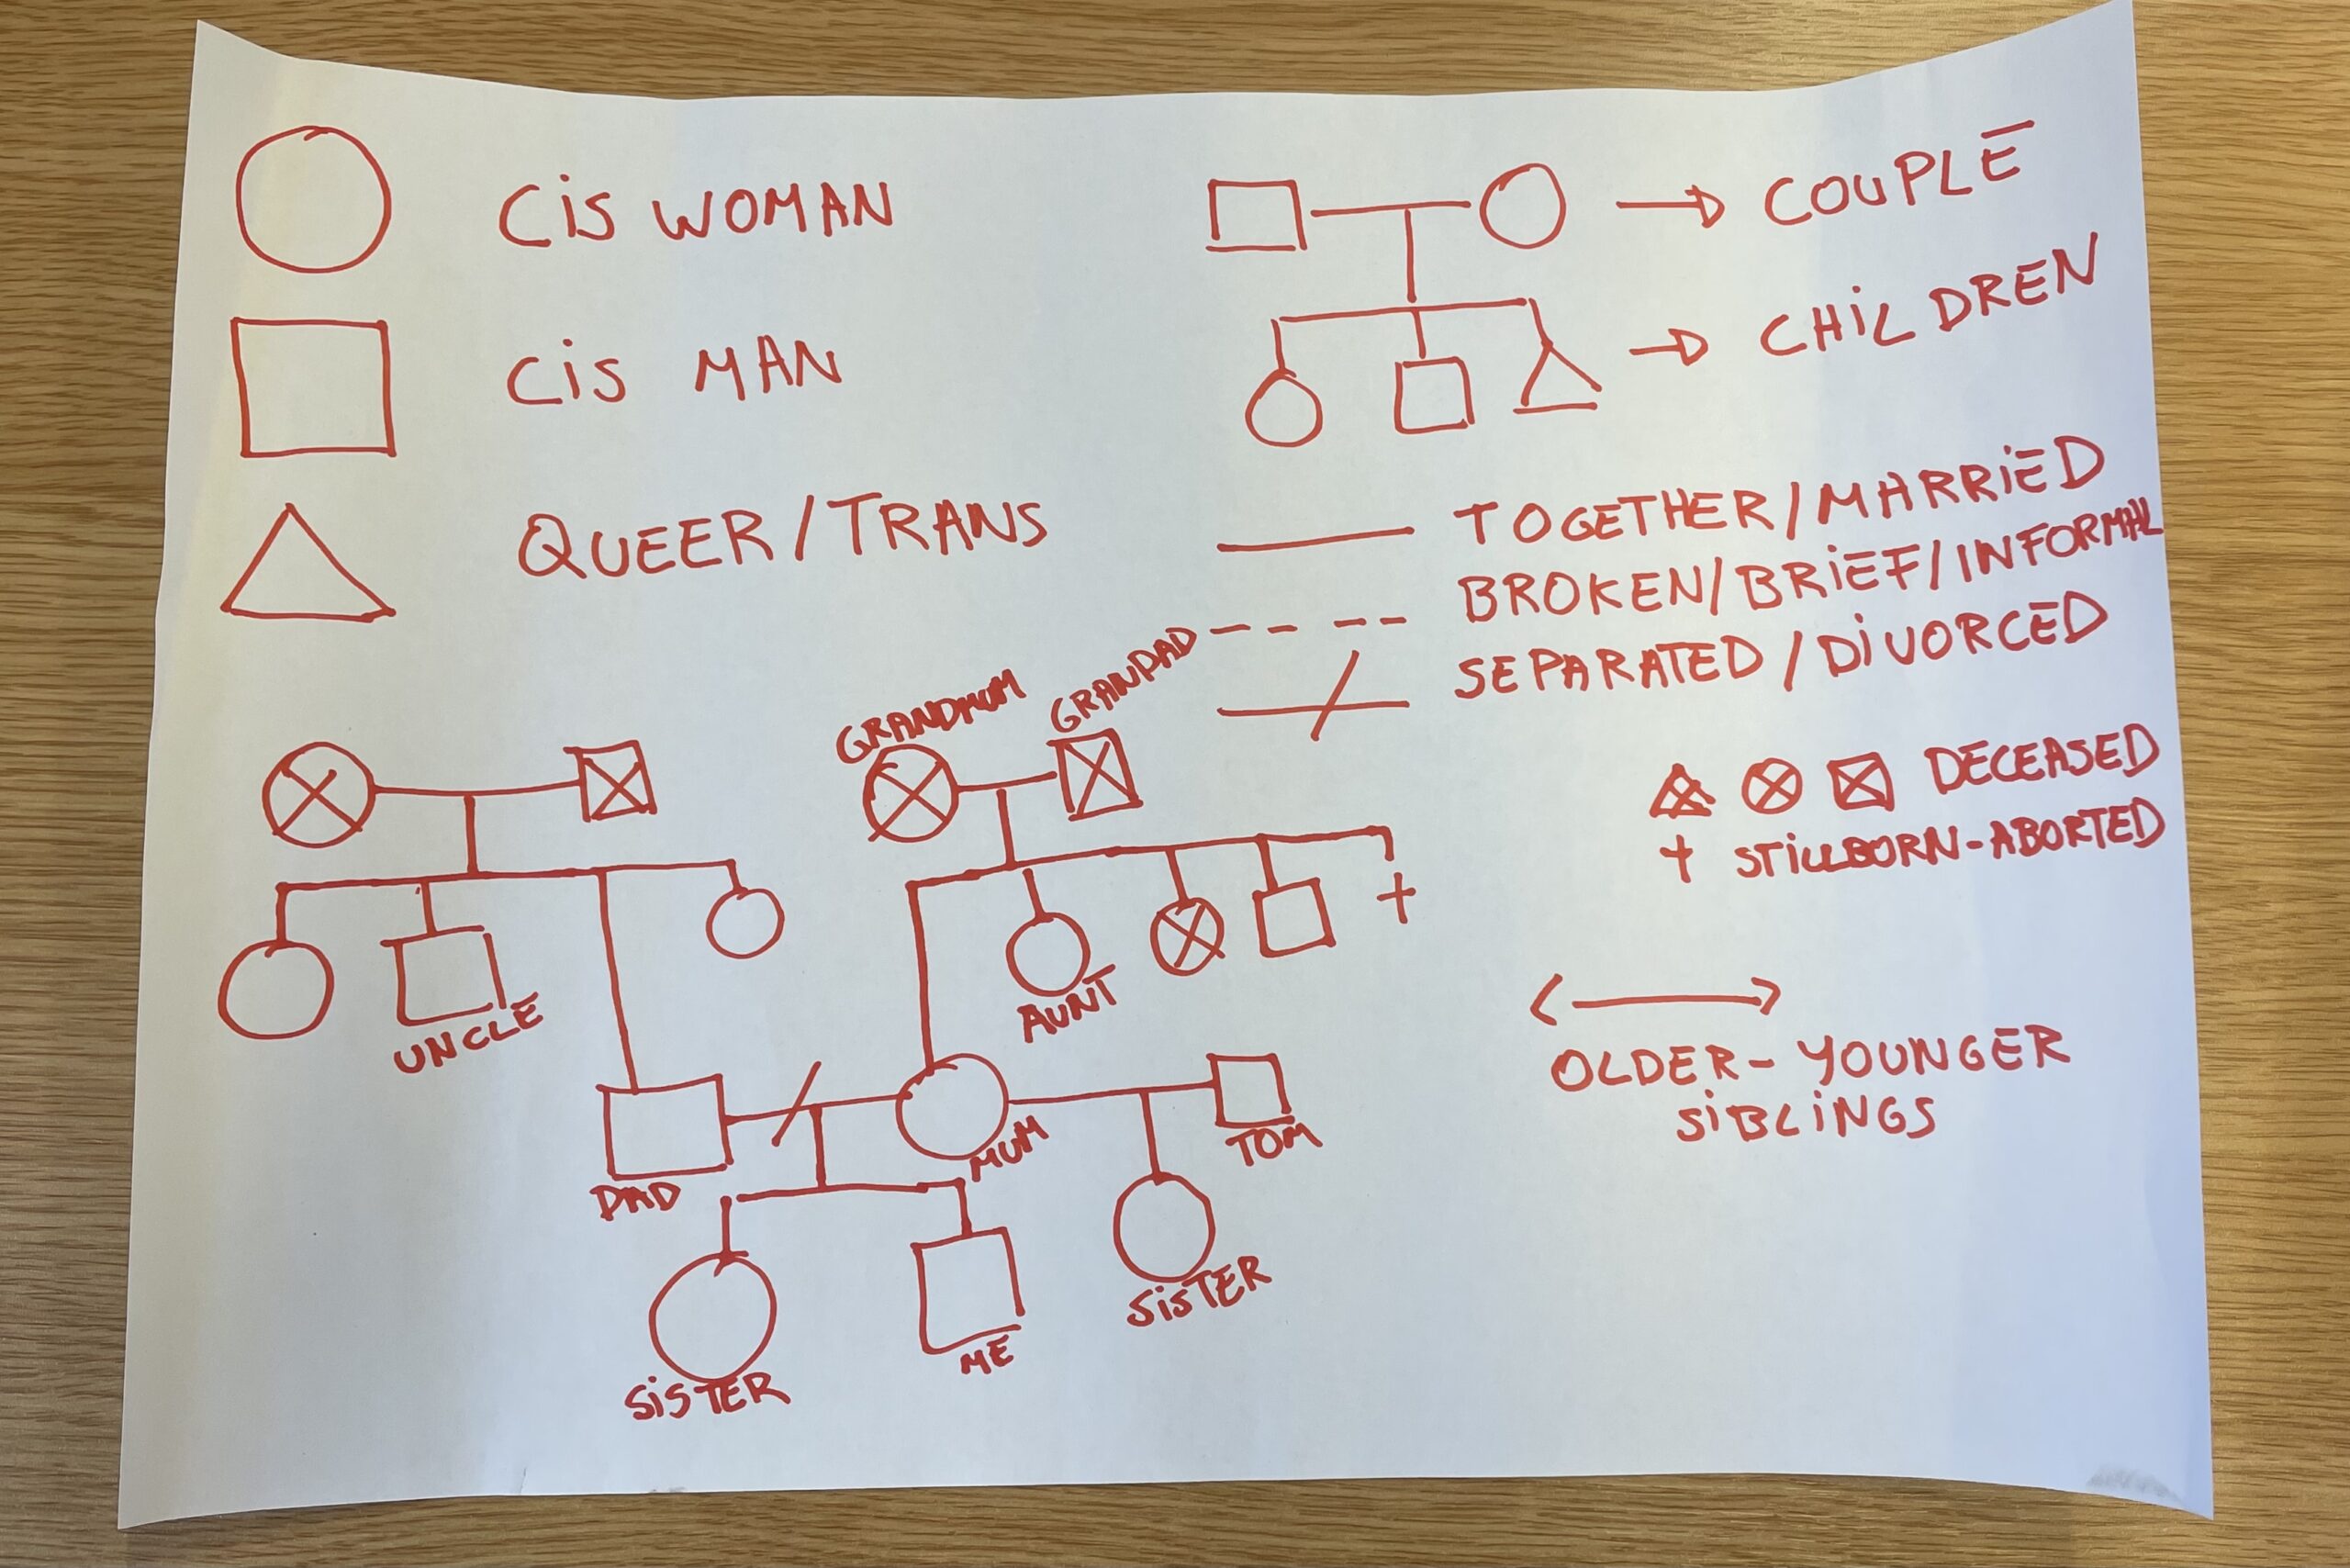 CiS WOMAN
CiS MAN
QUEER/TRANS
→ COUPLE
→ CHiLDREN
TOGETHER/MARRiED
BROKEN/BRiEF/INFORMAL
SEPARATED/DiVORCED
DECEASED
+ STiLLBORN-ABORTED
<—> 
OLDER-YOUNGER
SiBLiNGS
GRANDMUM
GRANDAD
UNCLE
AUNT
DAD
MUM
TOM
SiSTER
ME
SiSTER